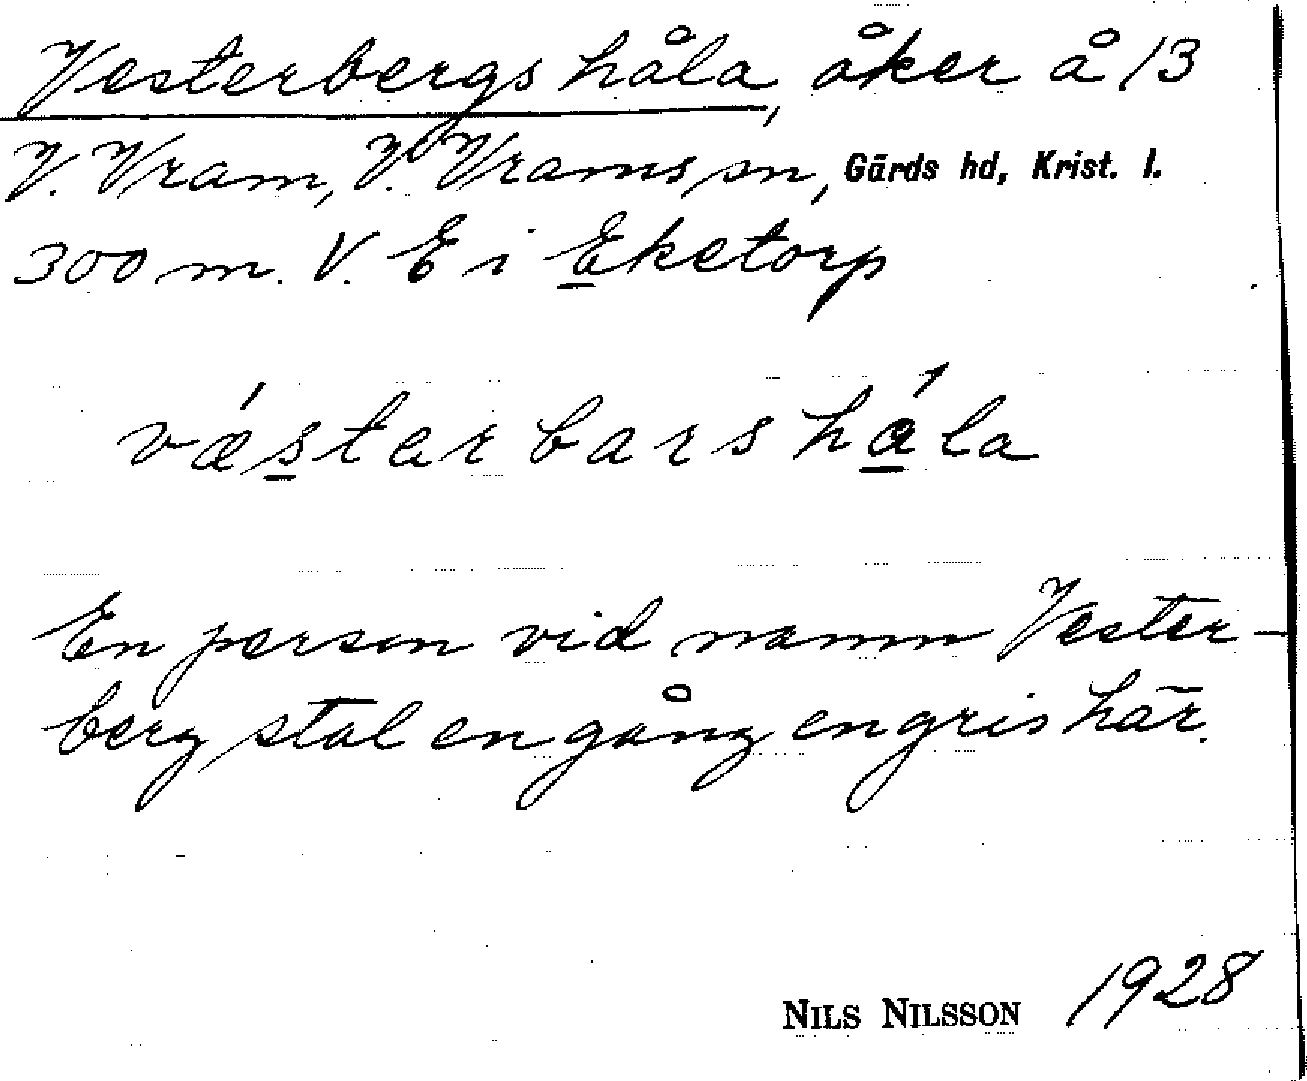 Vesterbergs håla, åker å 13
V. Vram, V. Vrams sn, Gärds hd, Krist. l.
300 m. V. E i Eketorp
vǽstarbars hála
En person vid namn Vester-
berg stal en gång en gris här.
NILS NILSSON 1928